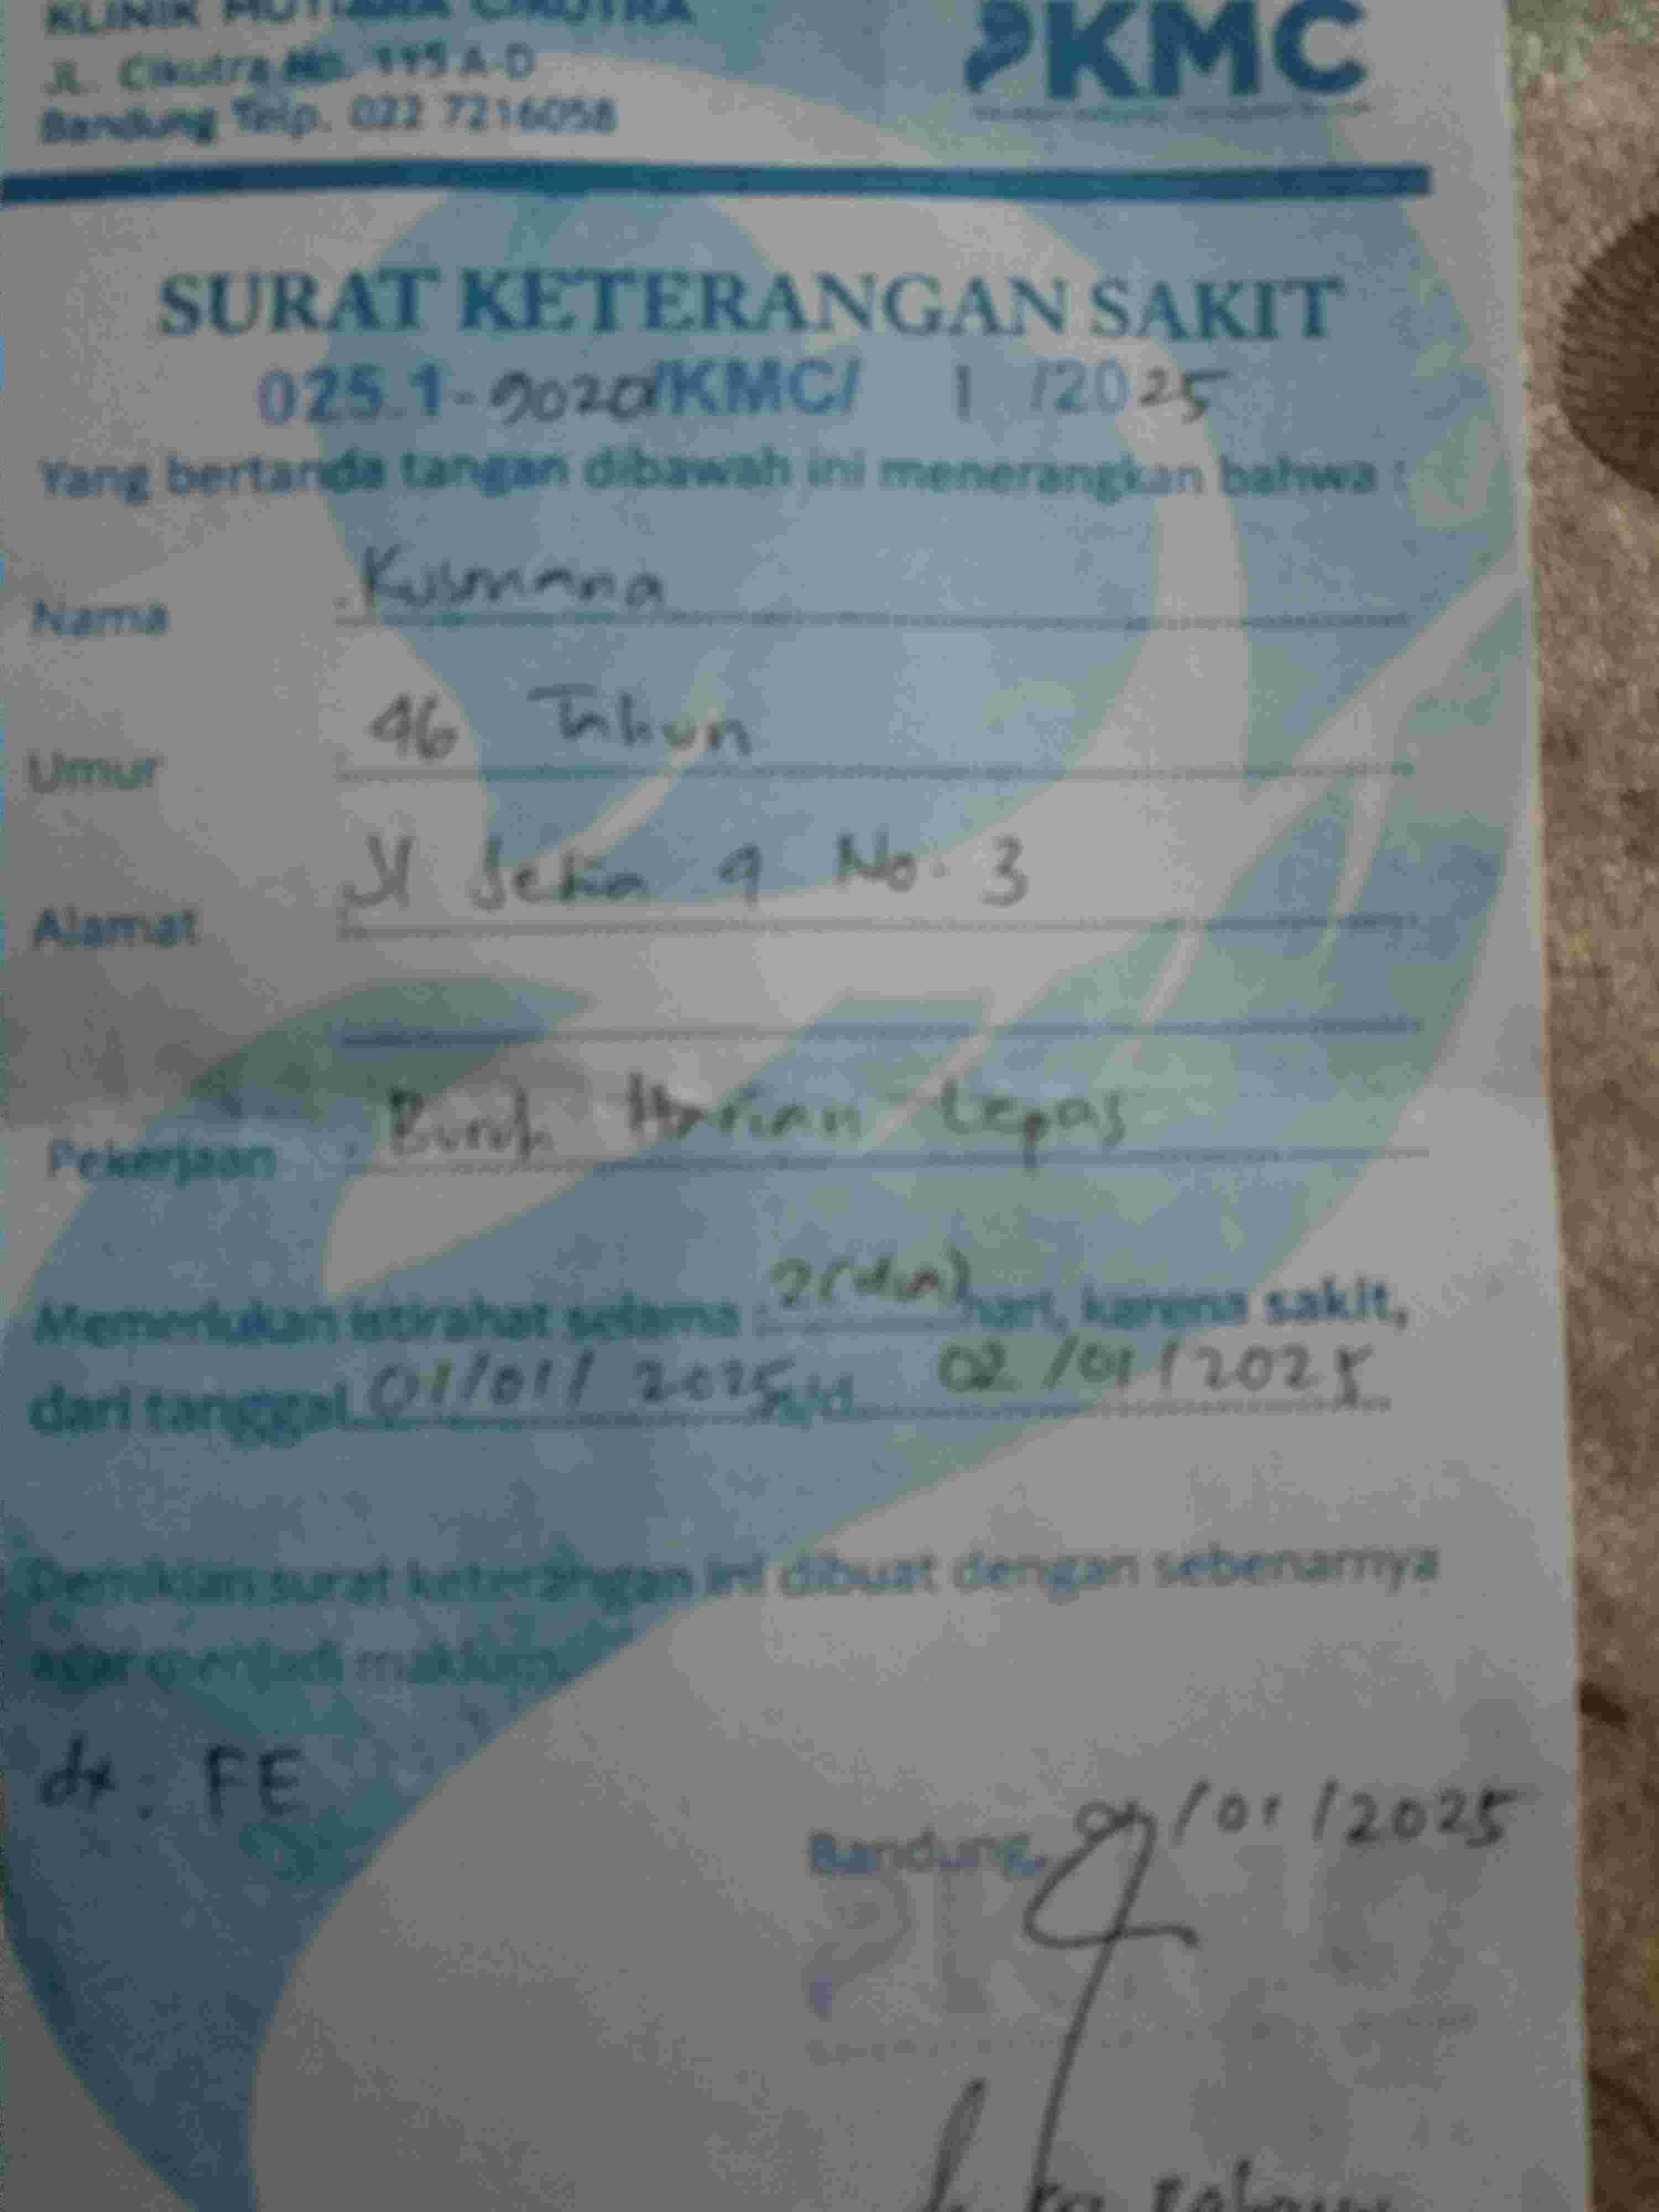 KLINIK MUTIARA CIKUTRA
JL. Cikutra No. 115 A-D
Bandung Telp. 022 7216058
KMC
SURAT KETERANGAN SAKIT
025.1-9020/KMC/ 1 /2025
Yang bertanda tangan dibawah ini menerangkan bahwa :
Nama : Kusmana
Umur 46 Tahun
Alamat : Jl Setia 9 No. 3
Pekerjaan : Buruh Harian Lepas
Memerlukan istirahat selama : 2 (dua) hari, karena sakit,
dari tanggal 01/01/2025 s/d 02/01/2025
Demikian surat keterangan ini dibuat dengan sebenarnya
agar menjadi maklum.
dx. FE
Bandung, /01/2025